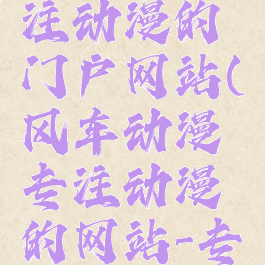 注动漫的
门户网站(
风车动漫
专注动漫
的网站-专